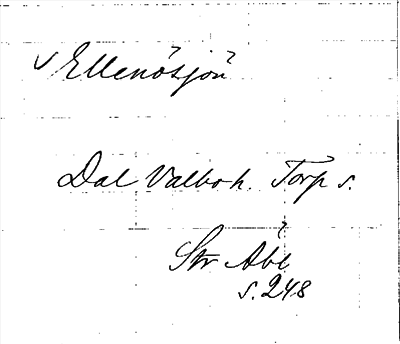 v Ellenösjön
Dal Valboh. Torp s.
Str Åbl
s. 248